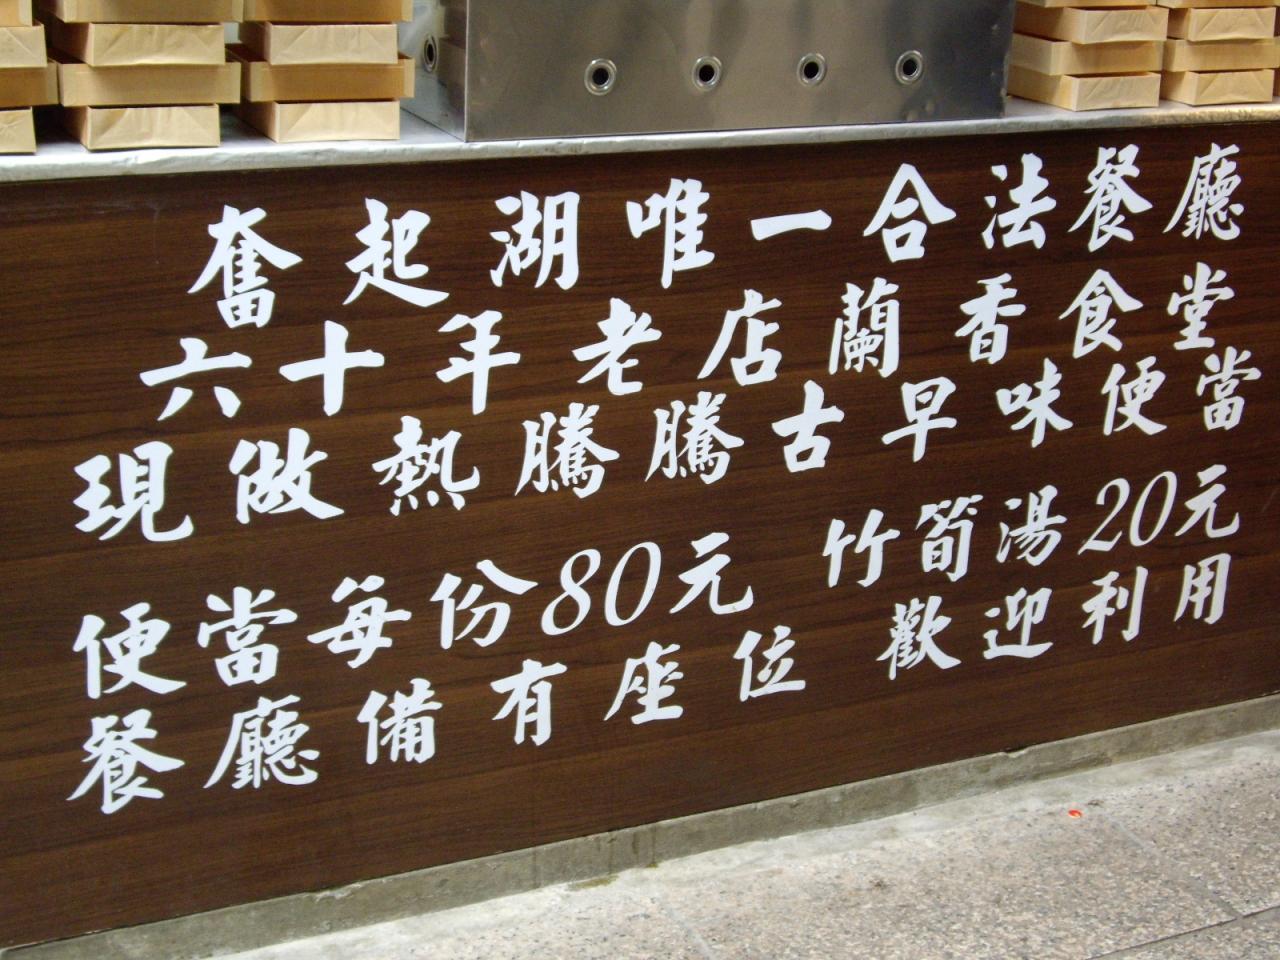 奮起湖唯一合法餐廳
六十年老店蘭香食堂
現做熱騰騰古早味便當
便當每份80元 竹筍湯20元
餐廳備有座位 歡迎利用